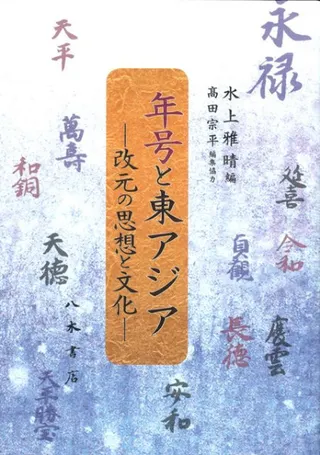 永禄
天平
水上雅晴編
髙田宗平編集協力
年号と東アジア
―改元の思想と文化―
萬壽
和銅
延喜
令和
貞観
天徳
長徳
慶雲
八木書店
天平勝宝
安和